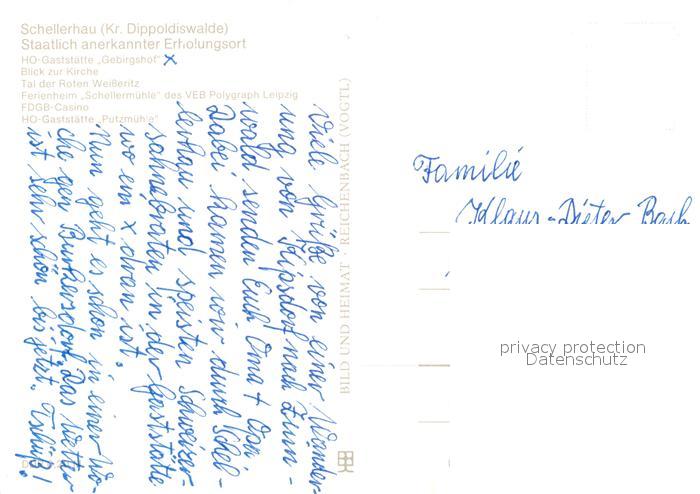 Schellerhau (Kr. Dippoldiswalde)
Staatlich anerkannter Erholungsort
HO-Gaststätte „Gebirgshof" x
Blick zur Kirche
Tal der Roten Weißeritz
Ferienheim „Schellermühle" des VEB Polygraph Leipzig
FDGB-Casino
HO-Gaststätte „Putzmühle"
Viele Grüße von einer Wander-
ung von Kipsdorf nach Zinn-
wald senden Euch Oma + Opa
Dabei kamen wir durch Schel-
lerhau und speisten Schweizer-
sahnebraten in der Gaststätte
wo ein x dran ist.
Nun geht es schon in einer Wo-
che gen Burkersdorf. Das Wetter
ist sehr schön bis jetzt. Tschüß!
BILD UND HEIMAT · REICHENBACH (VOGTL)
Familie
Klaus-Dieter Bach
privacy protection
Datenschutz